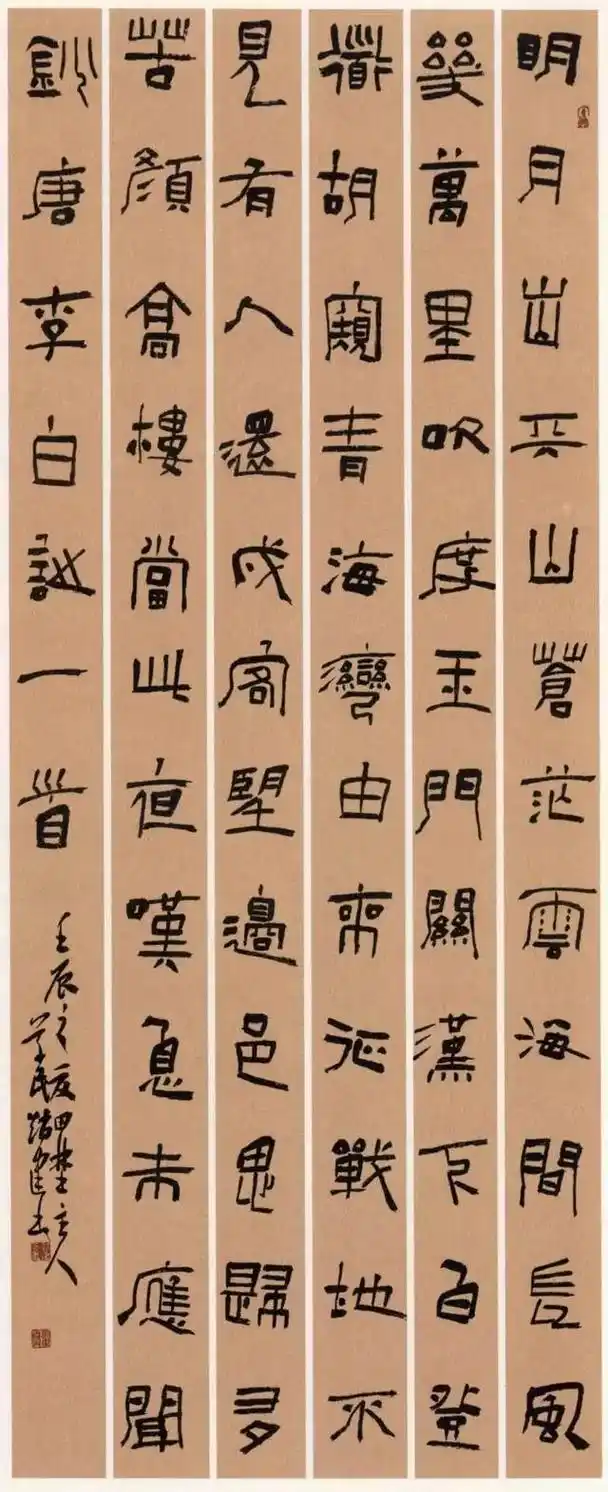 明月出天山蒼茫雲海間長風
幾萬里吹度玉門關漢下白登
道胡窺青海灣由來征戰地不
見有人還戍客望邊邑思歸多
苦顏高樓當此夜嘆息未應聞
鈔唐李白詩一首
壬辰之夏主人